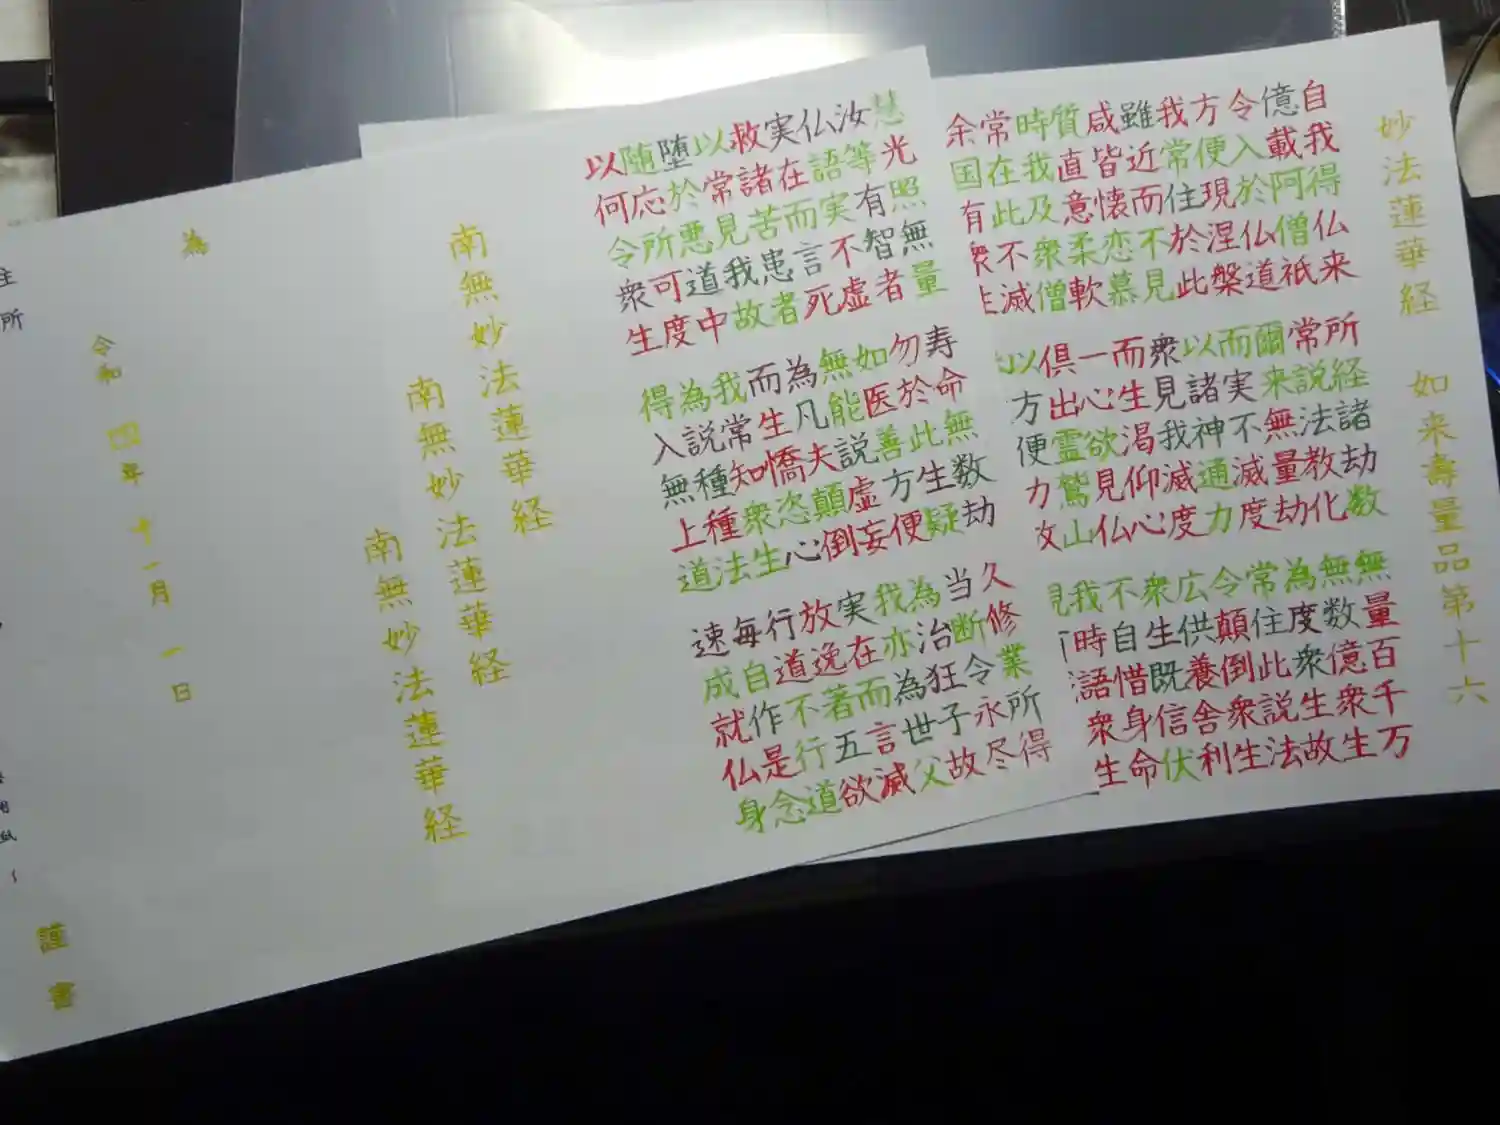 妙法蓮華経 如来壽量品第十六
自我得仏来 所経諸劫数 無量百千万
億載阿僧祇 常説法教化 無数億衆生
令入於仏道 爾来無量劫 為度衆生故
方便現涅槃 而実不滅度 常住此説法
我常住於此 以諸神通力 令顛倒衆生
雖近而不見 衆見我滅度 広供養舎利
咸皆懐恋慕 而生渇仰心 衆生既信伏
質直意柔軟 一心欲見仏 不自惜身命
時我及衆僧 俱出霊鷲山 我時語衆生
常在此不滅 以方便力故
余国有衆生
慧光照無量 寿命無数劫 久修業所得
汝等有智者 勿於此生疑 当断令永尽
仏語実不虚 如医善方便 為治狂子故
実在而言死 無能説虚妄 我亦為世父
救諸苦患者 為凡夫顛倒 実在而言滅
以常見我故 而生憍恣心 放逸著五欲
堕於悪道中 我常知衆生 行道不行道
随応所可度 為説種種法 毎自作是念
以何令衆生 得入無上道 速成就仏身
南無妙法蓮華経
南無妙法蓮華経
南無妙法蓮華経
為
令和四年十一月一日
謹書
所